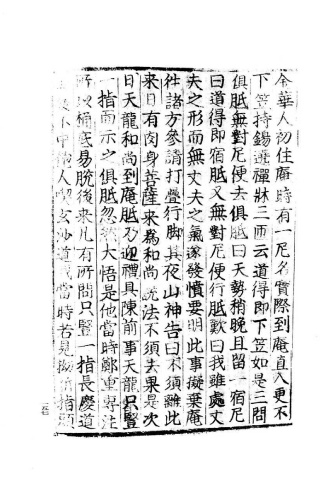 金華人初住庵時有一尼名實際到庵直入更不
下笠持錫遶禪牀三帀云道得即下笠如是三問
俱胝無對尼便去俱胝曰天勢稍晚且留一宿尼
曰道得即宿胝又無對尼便行胝歎曰我雖處丈
夫之形而無丈夫之氣遂發憤要明此事擬棄庵
往諸方參請打疊行脚其夜山神告曰不須離此
來日有肉身菩薩來為和尚說法不須去果是次
日天龍和尚到庵胝乃迎禮具陳前事天龍只豎
一指而示之俱胝忽然大悟是他當時鄭重專注
所以桶底易脫後來凡有所問只豎一指長慶道
不中人喫玄沙道我當時若見拗折指頭